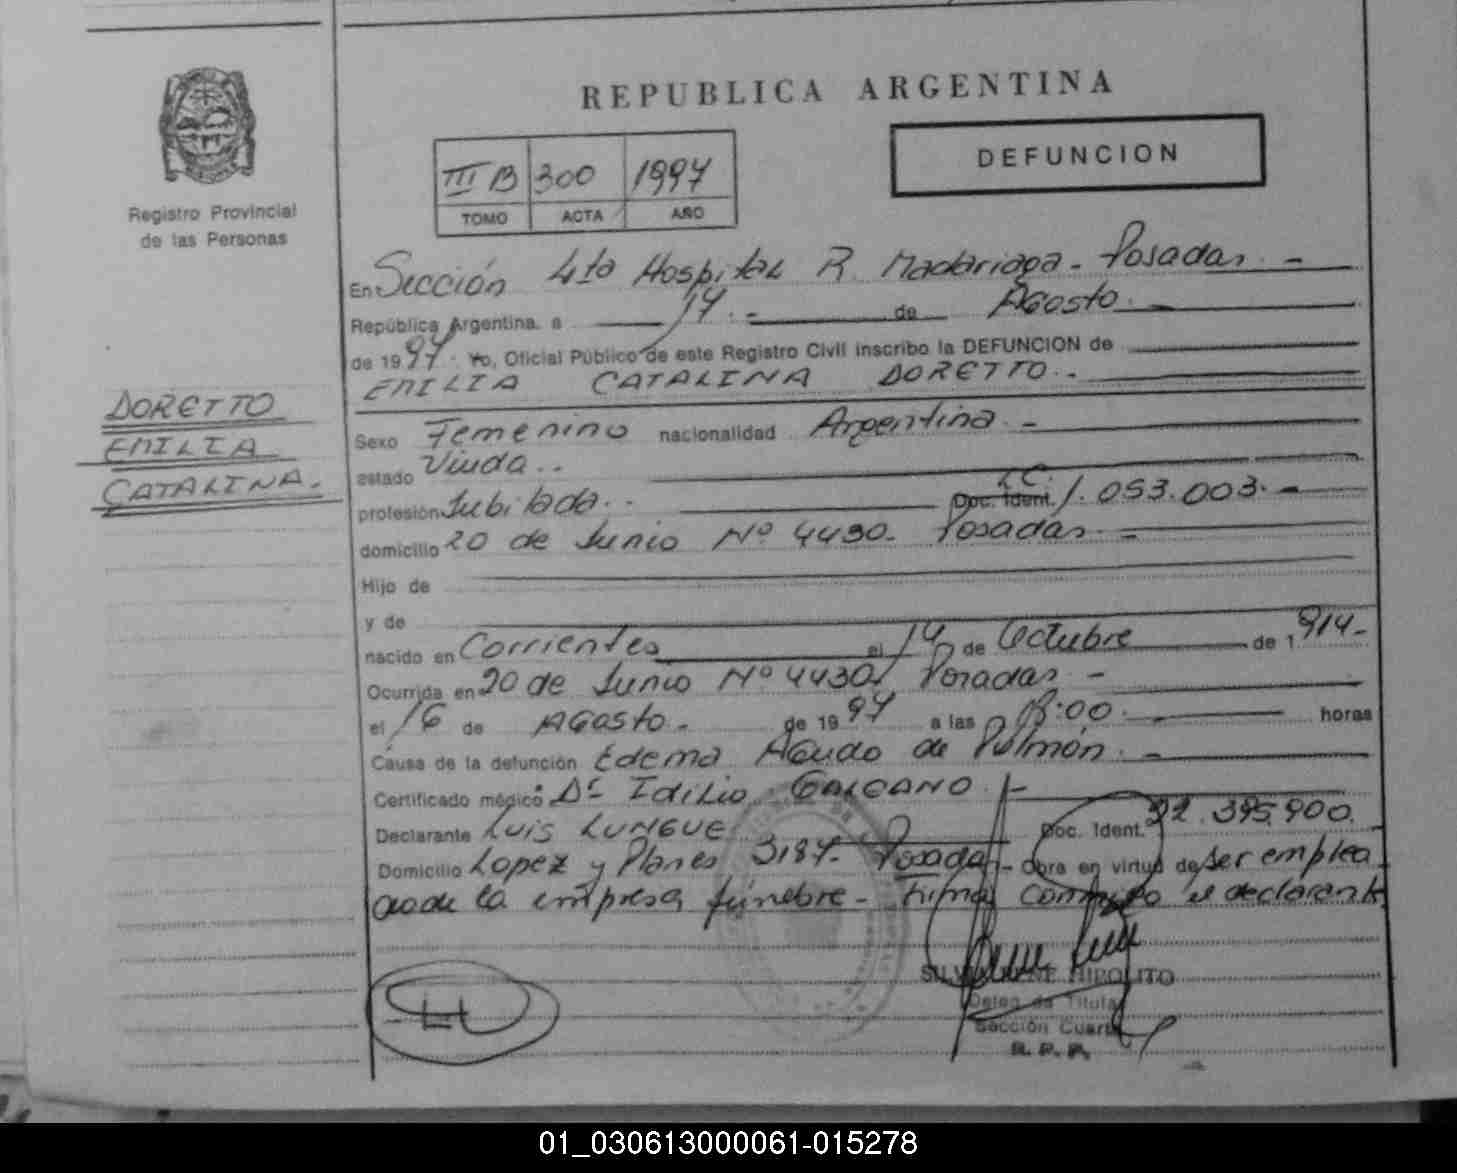 REPUBLICA ARGENTINA
DEFUNCION
III B 300 1997
TOMO ACTA AÑO
Registro Provincial
de las Personas
En Sección 4ta Hospital R. Madariaga - Posadas. -
República Argentina, a 17. - de Agosto. -
de 1997. Yo, Oficial Público de este Registro Civil inscribo la DEFUNCION de
EMILIA CATALINA DORETTO..
DORETTO
EMILIA
CATALINA.
Sexo Femenino nacionalidad Argentina. -
estado Viuda..
profesión Jubilada.. Doc. Ident. L.C. 1.053.003. -
domicilio 20 de Junio Nº 4430. Posadas -
Hijo de
y de
nacido en Corrientes el 14 de Octubre de 1914-
Ocurrida en 20 de Junio Nº 4430, Posadas -
el 16 de Agosto. de 1997 a las horas
Causa de la defunción Edema Agudo de Pulmón. -
Certificado médico Dr Idilio GALEANO. -
Declarante LUIS LUNGUE Doc. Ident. 22.395.900.
Domicilio Lopez y Planes 3187. Posadas - Obra en virtud de ser emplea
do de la empresa fúnebre - Firma conmigo el declarante
SILVIA IRENE HIPOLITO
Deleg da Titular
Sección Cuarta
R. P. P.
LL
01_030613000061-015278